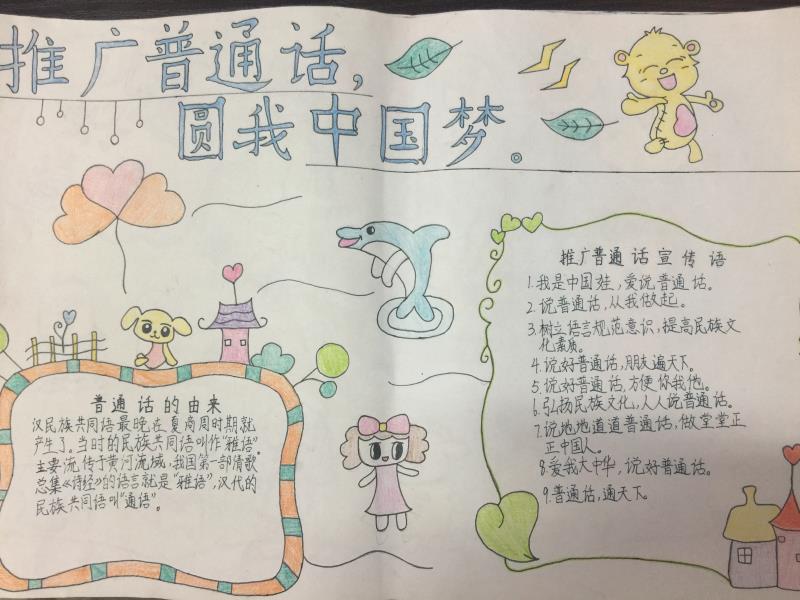 推广普通话，
圆我中国梦。
普通话的由来
汉民族共同语最晚在夏商周时期就
产生了，当时的民族共同语叫作"雅语"。
主要流传于黄河流域，我国第一部情歌
总集《诗经》的语言就是"雅语"，汉代的
民族共同语叫"通语"。
推广普通话宣传语
1.我是中国娃，爱说普通话。
2.说普通话，从我做起。
3.树立语言规范意识，提高民族文
化素质。
4.说好普通话，朋友遍天下。
5.说好普通话，方便你我他。
6.弘扬民族文化，人人说普通话。
7.说地地道道普通话，做堂堂正
正中国人。
8.爱我大中华，说好普通话。
9.普通话，通天下。